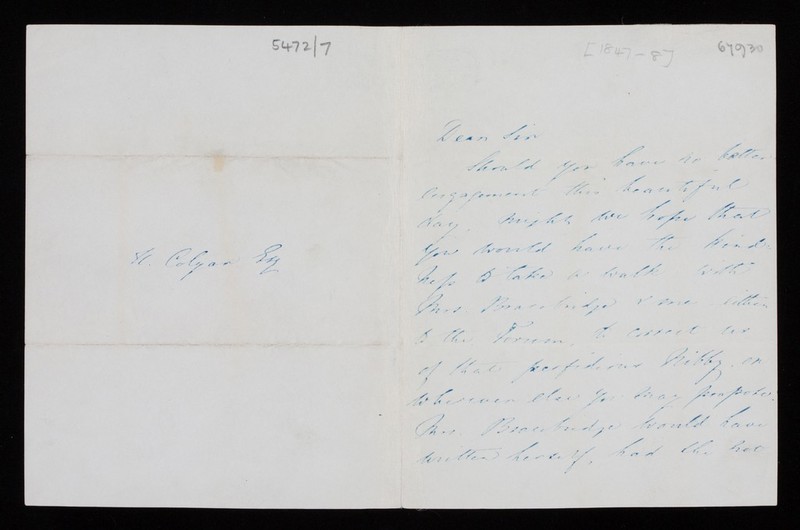 5472/7
[1847-8]
67930
H. Colyar Esq
Dear Sir
Should you have no better
engagement this beautiful
day, might we hope that
you would have the kind-
ness to take a walk with
Mrs. Bracebridge & me either
to the Forum, to correct us
of that perfidious Nibby, or
wherever else you may propose.
Mrs. Bracebridge would have
written herself, had she not